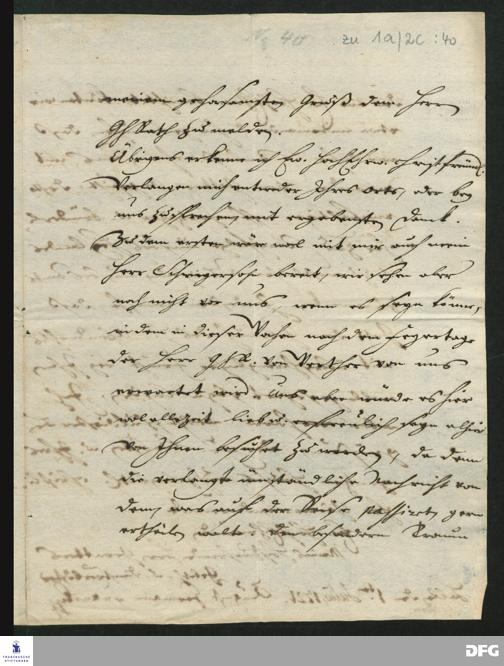 N. 40 zu 1a/2c:40
meinen gehorsamsten Gruß dem Herrn
GhRath zu melden.
Übrigens erkenne ich Ew. HochEhrw. christfreundl.
Verlangen mich entweder Ihres Orts, oder bey
uns zu sprechen, mit ergebensten Danck.
Zu dem ersten wäre wol mit mir auch mein
Herr Schwiegersohn bereit, wir sehen aber
noch nicht vor uns, wenn es seyn könne,
indem in dieser Wochen nach dem Feyertage
der Herr GhR. von Werther von uns
erwartet wird. Uns aber würde es hier
wol allezeit lieb u. erfreulich seyn allhie
von Ihnen besuchet zu werden, da denn
die verlangte umständliche Nachricht von
dem, was auf der Reise passiret, gern
ertheilen wolte. Den besondern Traum
FRANCKESCHE STIFTUNGEN
DFG